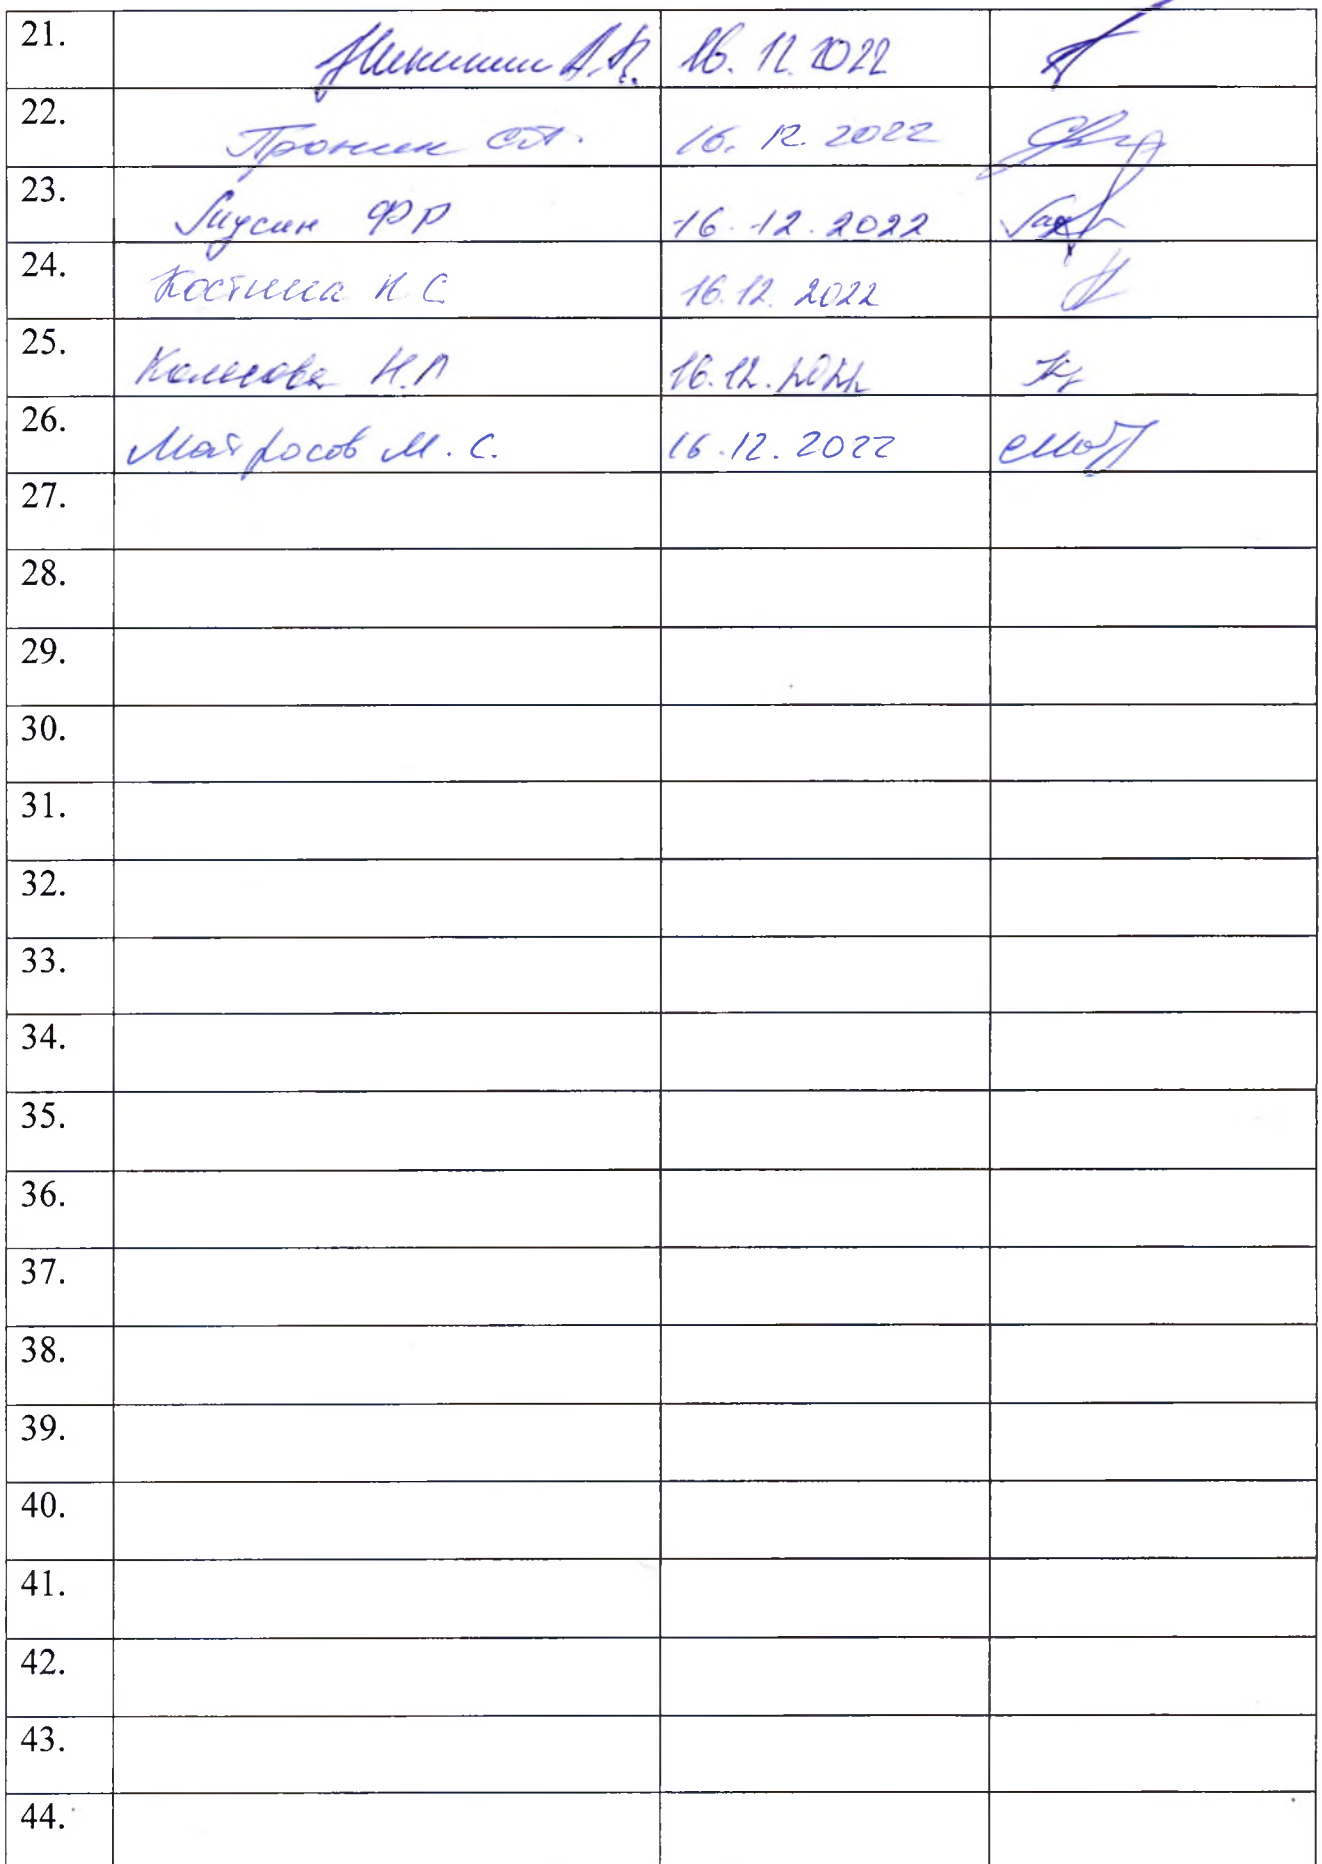 21. Никишин А.В. 16.12.2022
22. Пронин С.А. 16.12.2022
23. Гиусин ФР 16.12.2022
24. Костина Н С 16.12.2022
25. Н.П 16.12.2022
26. Матросов М.С. 16.12.2022
27.
28.
29.
30.
31.
32.
33.
34.
35.
36.
37.
38.
39.
40.
41.
42.
43.
44.